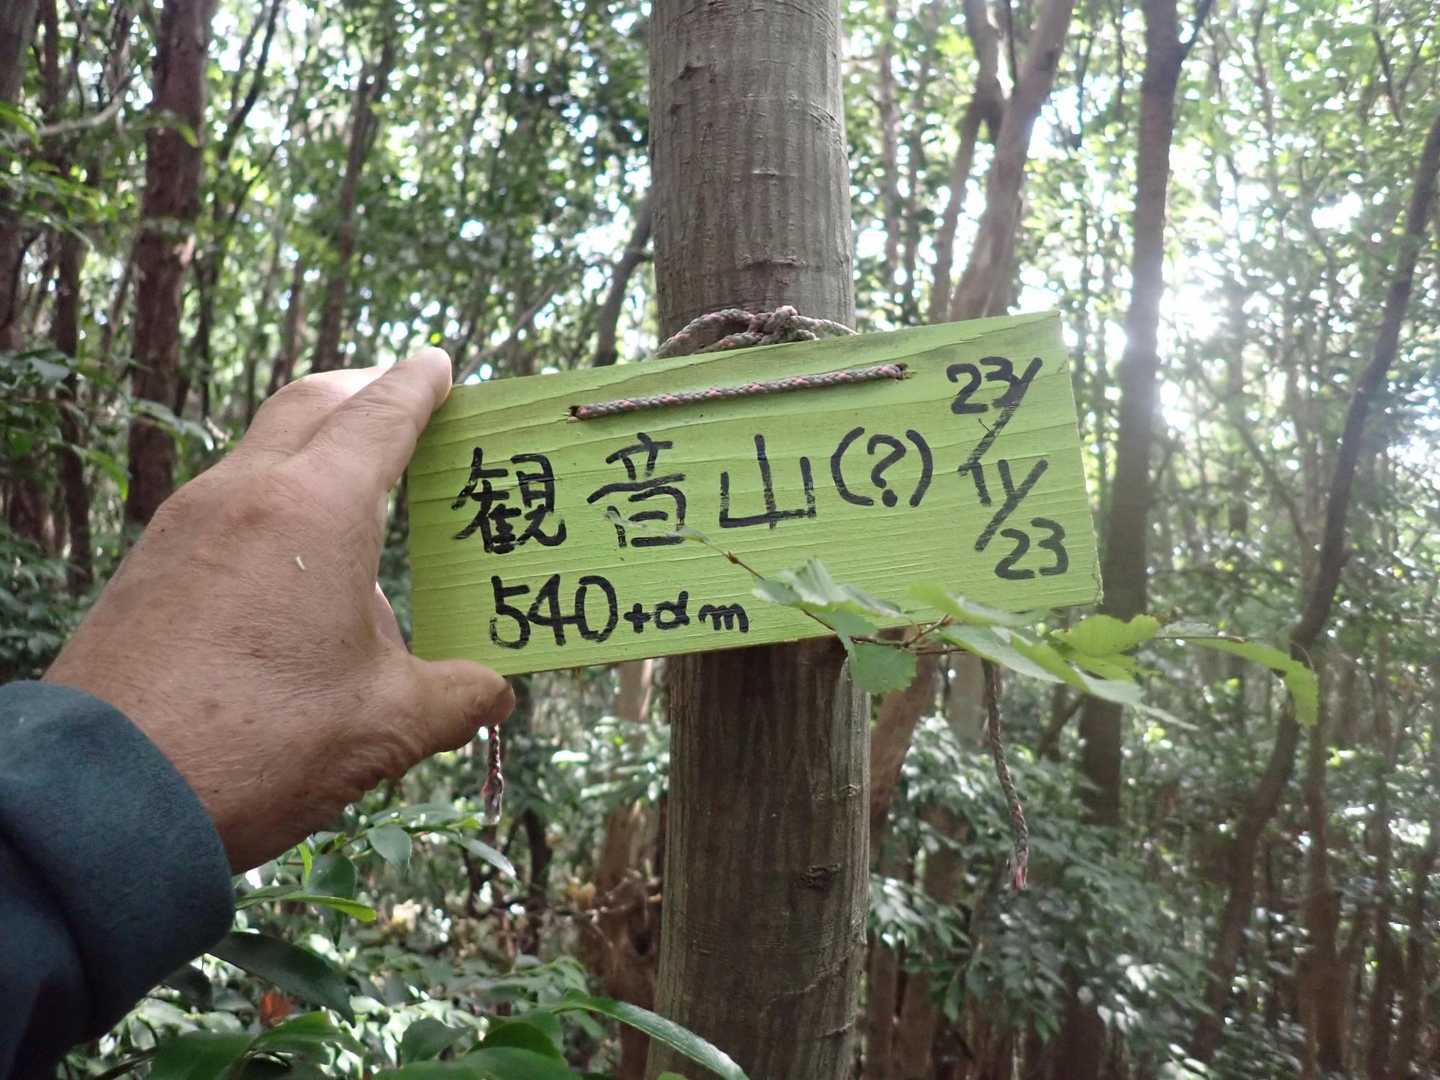 観音山(?)
540+αm
23/11/23